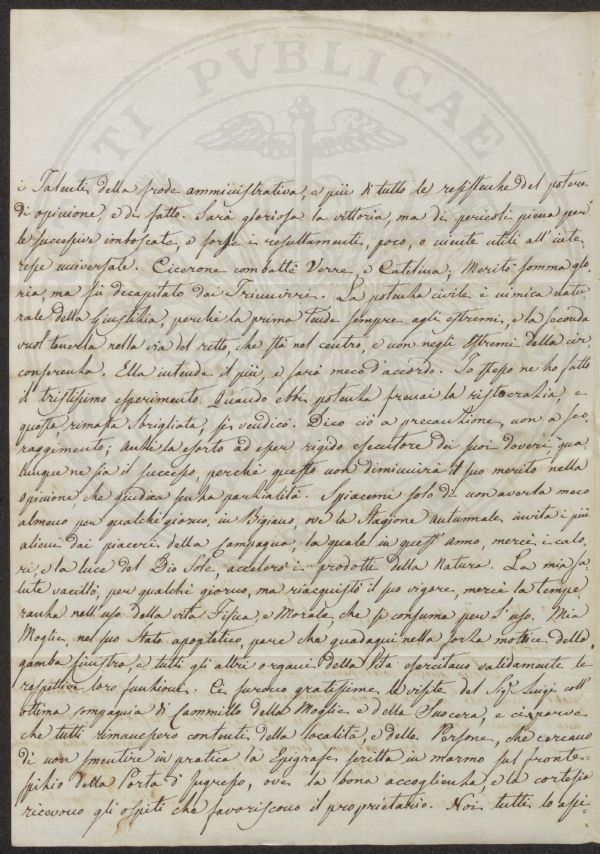 TI PVBLICAE
i Talenti della frode amministrativa, e più di tutto le resistenze del potere
di opinione, e di fatto. Sarà gloriosa la vittoria, ma di pericoli piena per
le successive imboscate, e forse i resultamenti, poco, o niente utili all' inte-
resse universale. Cicerone combattè Verre, e Catilina; Meritò somma glo
ria, ma fù decapitato dai Triumviri. La potenza civile è nimica natu
rale della Giustizia, perchè la prima tende sempre agli estremi, e la seconda
vuol tenerla nella via del retto, che stà nel centro, e non negli Estremi della cir
conferenza. Ella intende il più, e sarà meco d'accordo. Io stesso ne ho fatto
il tristissimo esperimento. Quando ebbi potenza frenai la ristocrazia, e
questa, rimasta sbrigliata, si vendicò. Dico ciò a precauzione, non a sco
raggimento; Anzi la esorto ad esser rigido esecutore dei suoi doveri qua
lunque ne sia il successo, perchè questo non diminuirà il suo merito nella
opinione, che giudica senza parzialità. Spiacemi solo di non averla meco
almeno per qualche giorno, in Bigiano, ove la Stagione Autunnale invita i più
alieni dai piaceri della Campagna, la quale in quest' anno, mercè i calo
ri, e la luce del Dio Sole, accelerò i prodotti della Natura. La mia sa
lute vacillò, per qualche giorno, ma riacquistò il suo vigore, mercè la tempe
ranza nell'uso della vita Fisica, e Morale, che si consuma per l'uso. Mia
Moglie, nel suo stato apopletico, pare che guadagni nella forza motrice della
gamba sinistra e tutti gli altri organi della Vita esercitano validamente le
respettive loro funzioni. Ci furono gratissime le visite del Sig.r Luigi coll'
ottima compagnia di Cammillo della Moglie e della Suocera, e ci parve
che tutti rimanessero contenti della località, e delle Persone, che cercano
di non smentire in pratica la Epigrafe, scritta in marmo sul fronte-
spizio della Porta d' Ingresso, ove la bona accoglienza, e la cortesia
ricevono gli ospiti che favoriscono il proprietario. Noi tutti lo aspe-